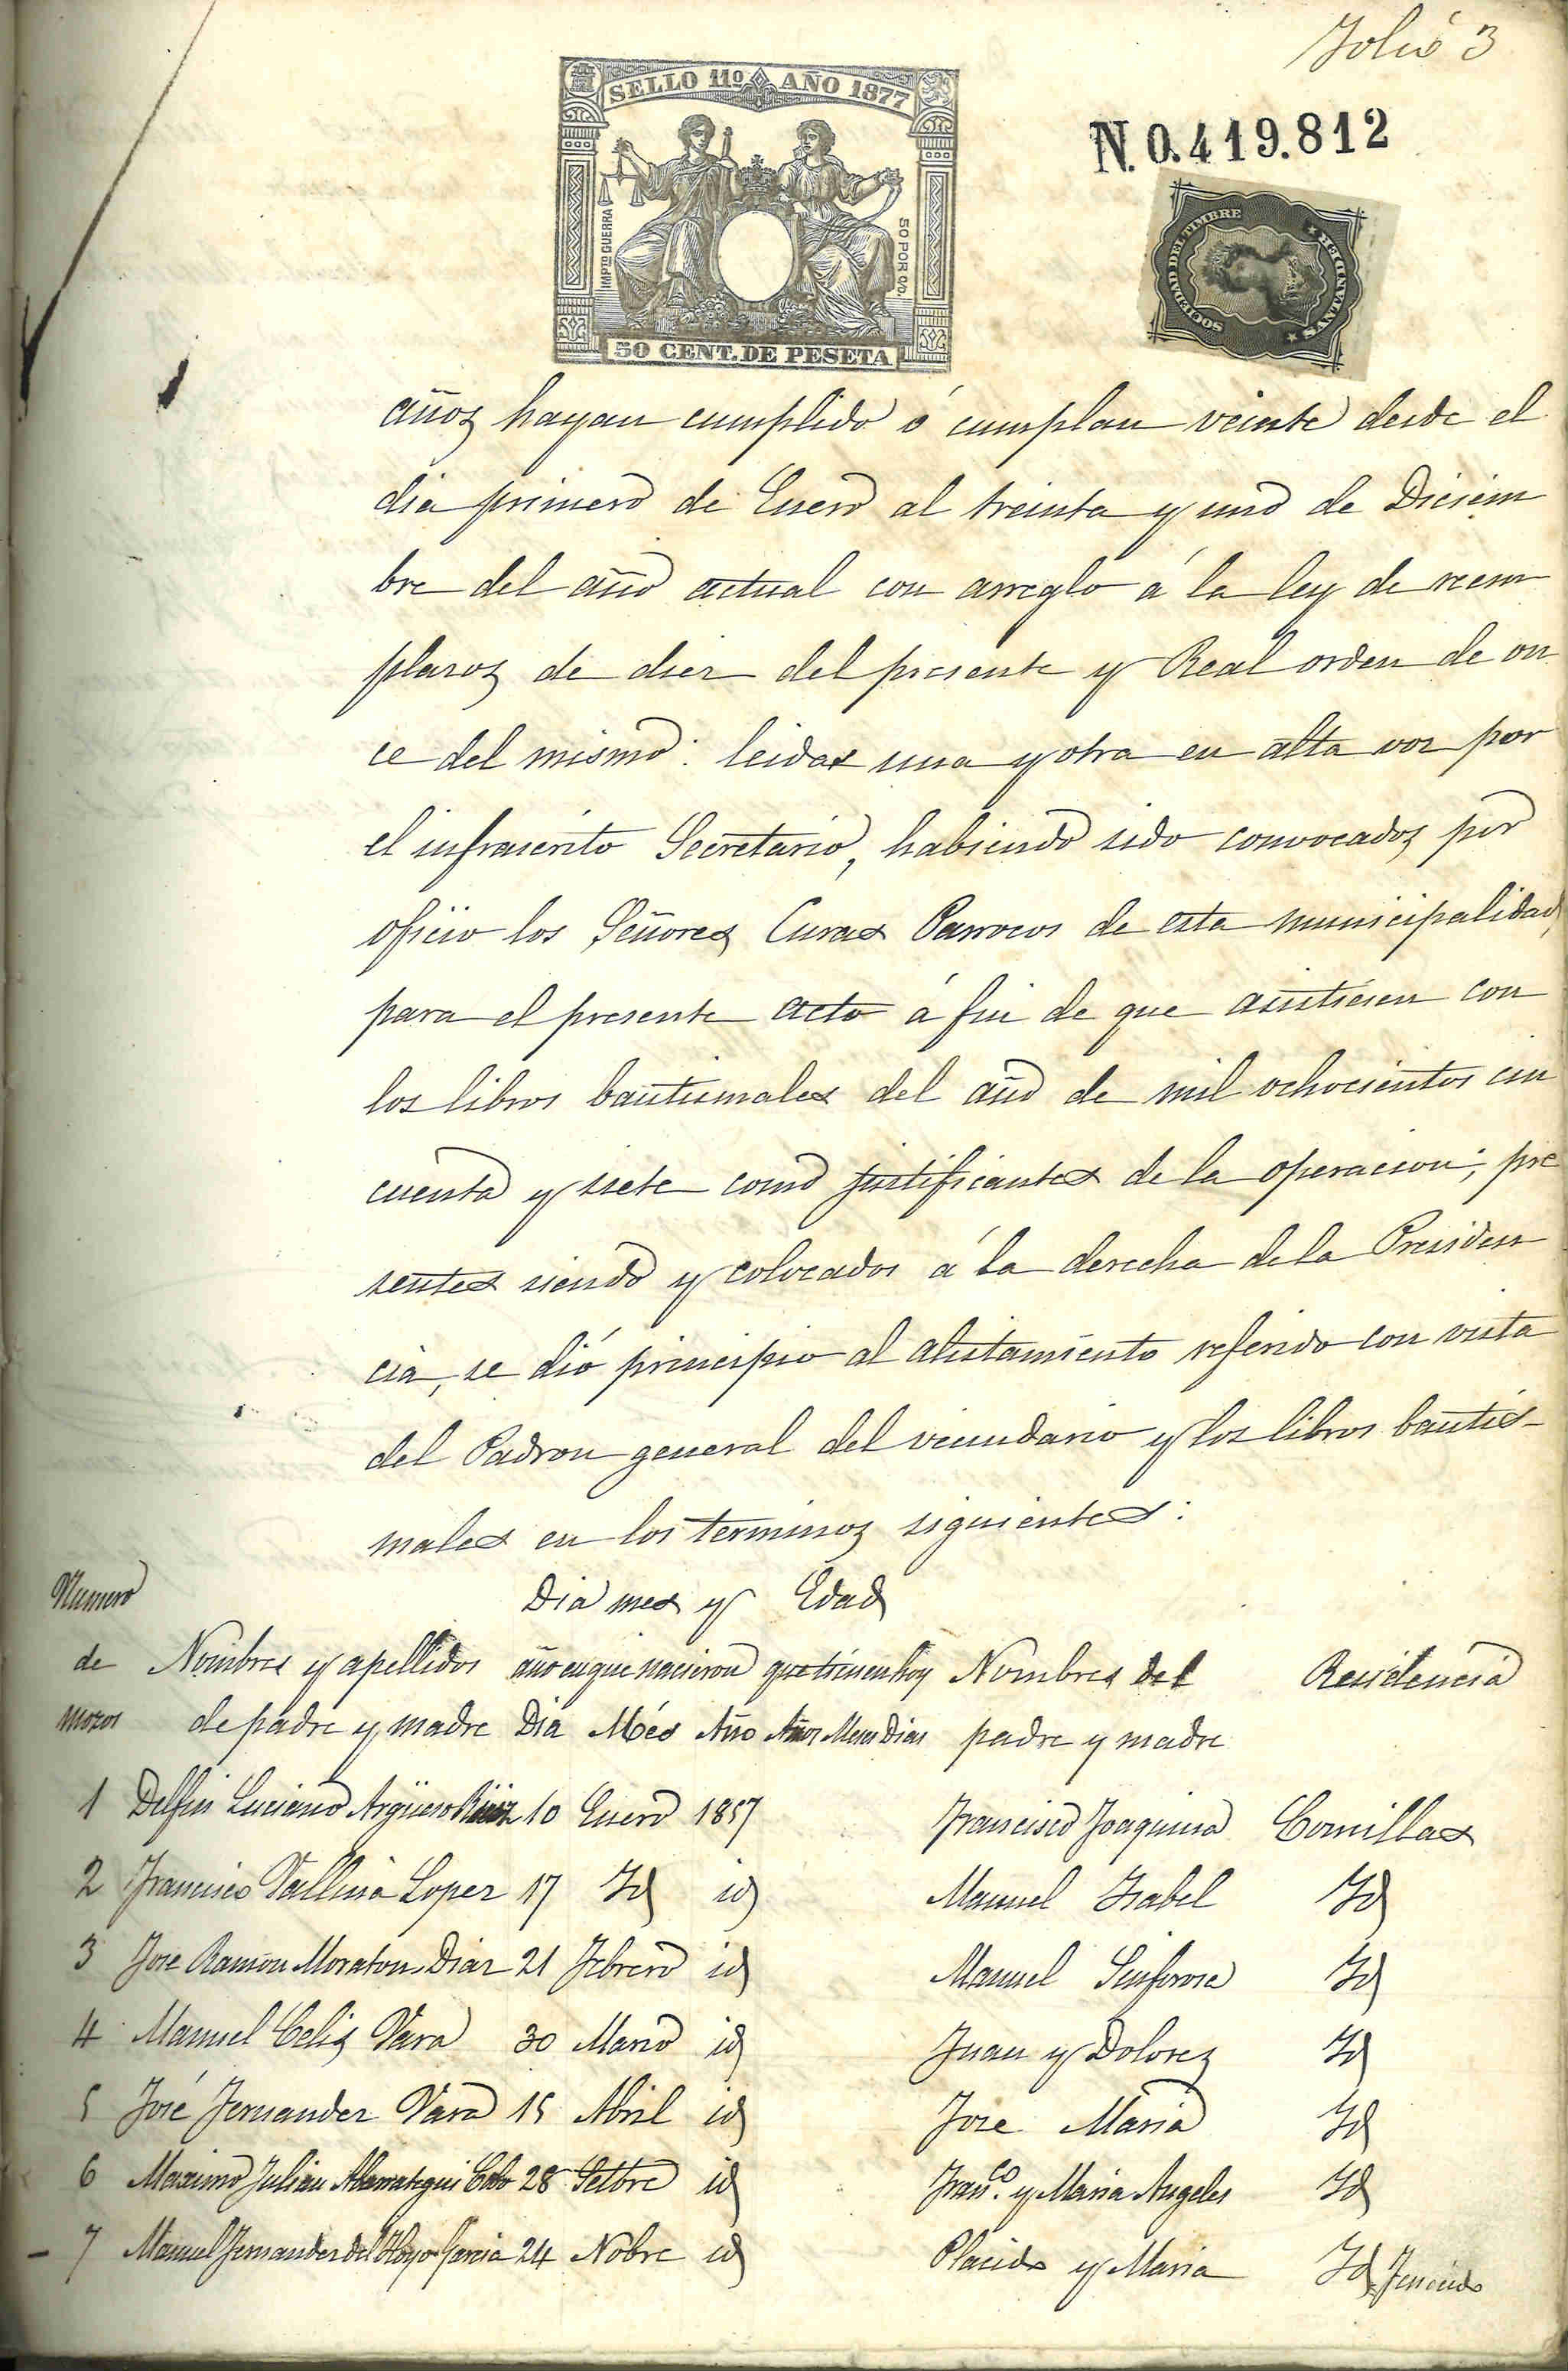 Folio 3
SELLO 11º AÑO 1877
IMPTO GUERRA
50 POR 0/0.
50 CENT. DE PESETA
N. 0.419.812
SOCIEDAD DEL TIMBRE
★ SANTANDER ★
años hayan cumplido ó cumplan veinte desde el
dia primero de Enero al treinta y uno de Diciem
bre del año actual con arreglo á la ley de reem
plazos de diez del presente y Real orden de on
ce del mismo: leidas una y otra en alta voz por
el infrascrito Secretario, habiendo sido convocados por
oficio los Señores Curas Parrocos de esta municipalidad,
para el presente acto á fin de que asistiesen con
los libros bautismales del año de mil ochocientos cin
cuenta y siete como justificantes de la operacion; pre
sentes siendo y colocados á la derecha de la Presiden
cia, se dió principio al alistamiento referido con vista
del Padron general del vecindario y los libros bautis-
males en los terminos siguientes:
Numero Dia mes y Edad
de Nombres y apellidos año en que nacieron que tienen hoy Nombres del Residencia
mozos de padre y madre Dia Més Año Años Meses Dias padre y madre
1 Delfin Luciano Argüeso Ruiz 10 Enero 1857 Francisco Joaquina Comillas
2 Francisco Vallina Lopez 17 Id id Manuel Isabel Id
3 Jose Ramon Moraton Diaz 21 Febrero id Manuel Sinforosa Id
4 Manuel Celis Vara 30 Marzo id Juan y Dolores Id
5 José Fernandez Vara 15 Abril id Jose Maria Id
6 Maximo Julian 28 Setbre id Franco. y Maria Angeles Id
- 7 Manuel Fernandez del Hoyo Garcia 24 Nobre id Placido y Maria Id